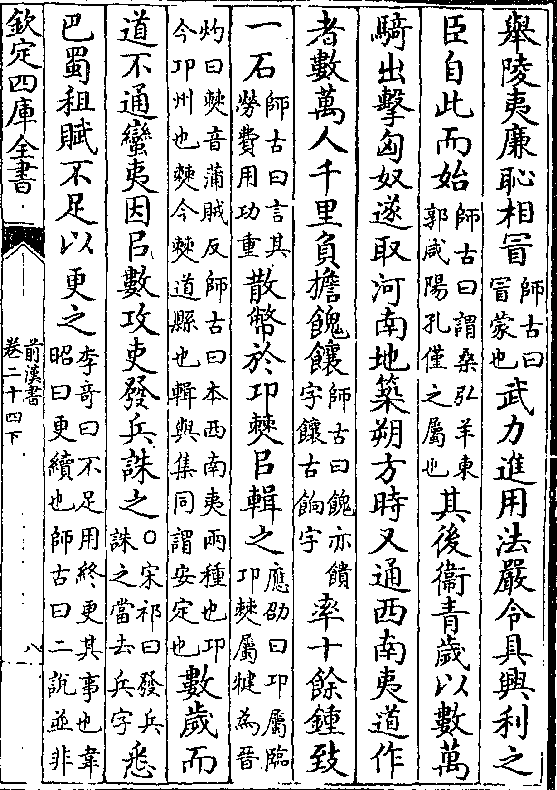 舉陵夷廉恥相冒師古曰冒蒙也武力進用法嚴令具興利之
臣自此而始師古曰謂桑弘羊東郭咸陽孔僅之屬也其後衛青歲以數萬
騎出擊匈奴遂取河南地築朔方時又通西南夷道作
者數萬人千里負擔餽饟師古曰餽亦饋字饟古餉字率十餘鍾致
一石師古曰言其勞費用功重散幣於卭僰㠯輯之應劭曰卭屬臨卭僰屬犍為晉
灼曰僰音蒲賊反師古曰本西南夷兩種也卭今卭州也僰今僰道縣也輯與集同謂安定也數歲而
道不通蠻夷因㠯數攻吏發兵誅之○宋祁曰發兵誅之當去兵字悉
巴蜀租賦不足以更之李奇曰不足用終更其事也韋昭曰更續也師古曰二說並非
欽定四庫全書
前漢書
卷二十四下
八